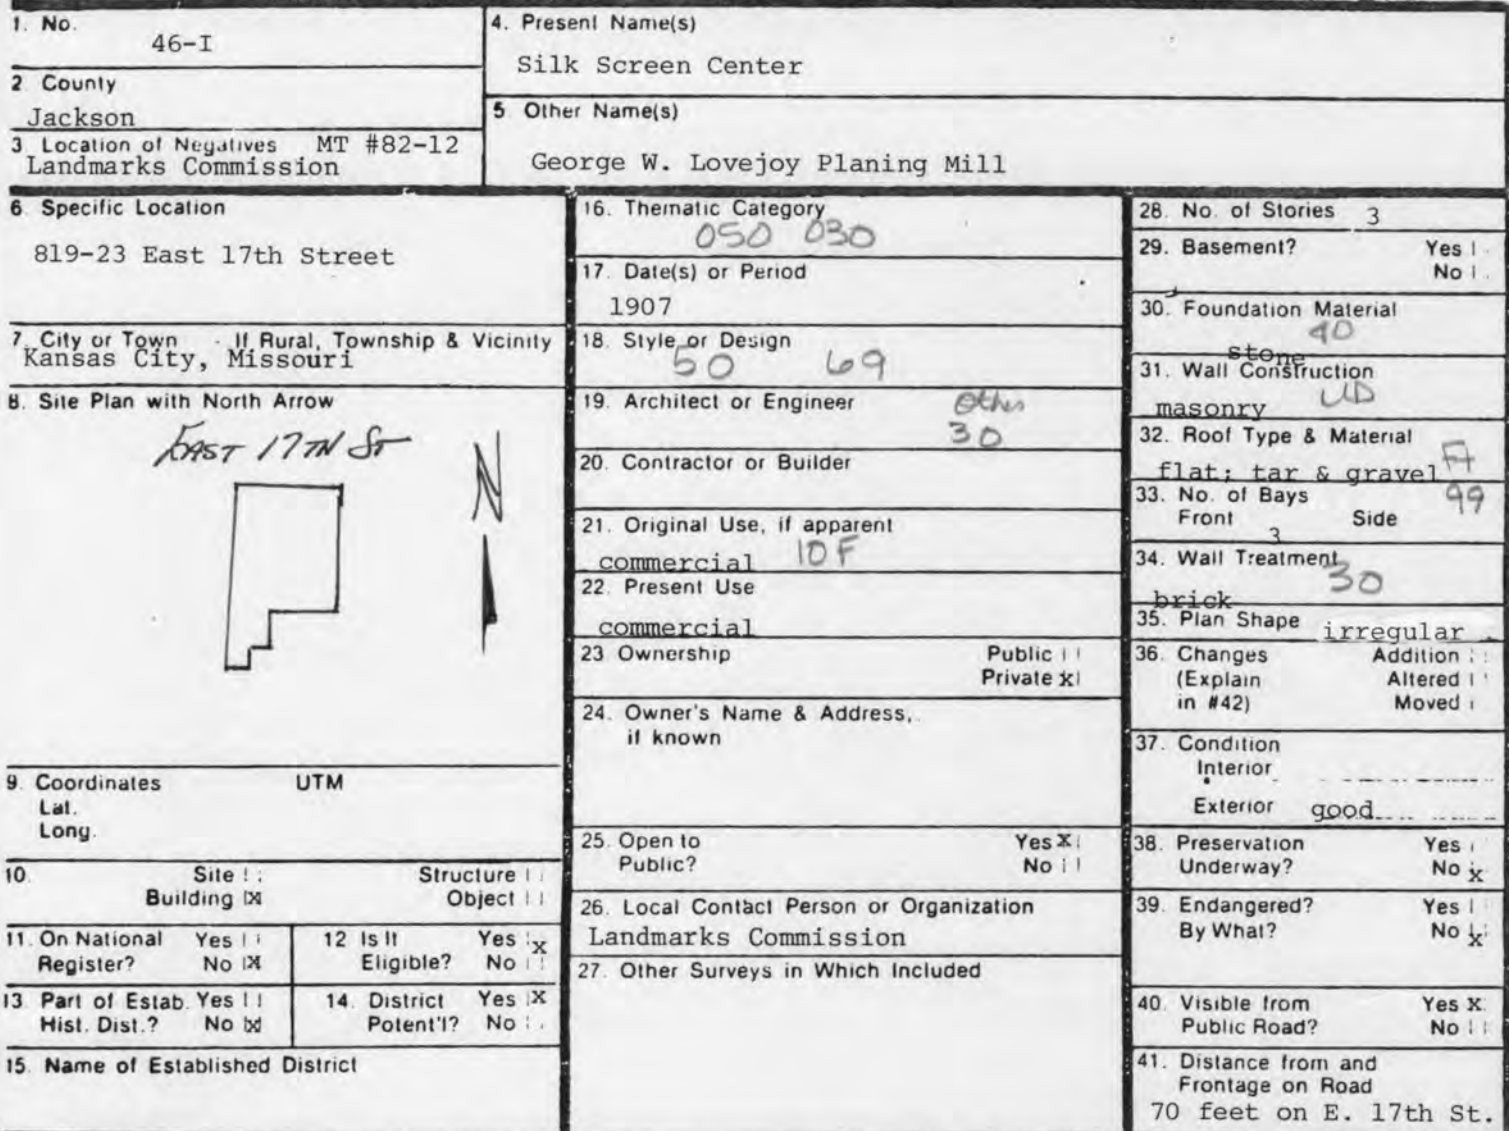 1. No.
46-I
2. County
Jackson
3. Location of Negatives MT #82-12
Landmarks Commission
4. Present Name(s)
Silk Screen Center
5. Other Name(s)
George W. Lovejoy Planing Mill
6. Specific Location
819-23 East 17th Street
7. City or Town If Rural, Township & Vicinity
Kansas City, Missouri
8. Site Plan with North Arrow
EAST 17TH ST
N
9. Coordinates UTM
Lat.
Long.
10. Site Structure
Building X Object
11. On National Yes
Register? No X
12 Is It Yes X
Eligible? No
13 Part of Estab. Yes
Hist. Dist.? No X
14. District Yes X
Potent'l? No
15. Name of Established District
16. Thematic Category
050 030
17. Date(s) or Period
1907
18. Style or Design
50 69
19. Architect or Engineer Other
30
20. Contractor or Builder
21. Original Use, if apparent
commercial 10F
22. Present Use
commercial
23 Ownership Public
Private x
24. Owner's Name & Address,
if known
25. Open to Yes X
Public? No
26. Local Contact Person or Organization
Landmarks Commission
27. Other Surveys in Which Included
28. No. of Stories 3
29. Basement? Yes
No
30. Foundation Material
40
stone
31. Wall Construction
masonry UD
32. Roof Type & Material
flat; tar & gravel
33. No. of Bays 99
Front Side
3
34. Wall Treatment
30
brick
35. Plan Shape irregular
36. Changes Addition
(Explain Altered
in #42) Moved
37. Condition
Interior
Exterior good
38. Preservation Yes
Underway? No x
39. Endangered? Yes
By What? No x
40. Visible from Yes X
Public Road? No
41. Distance from and
Frontage on Road
70 feet on E. 17th St.